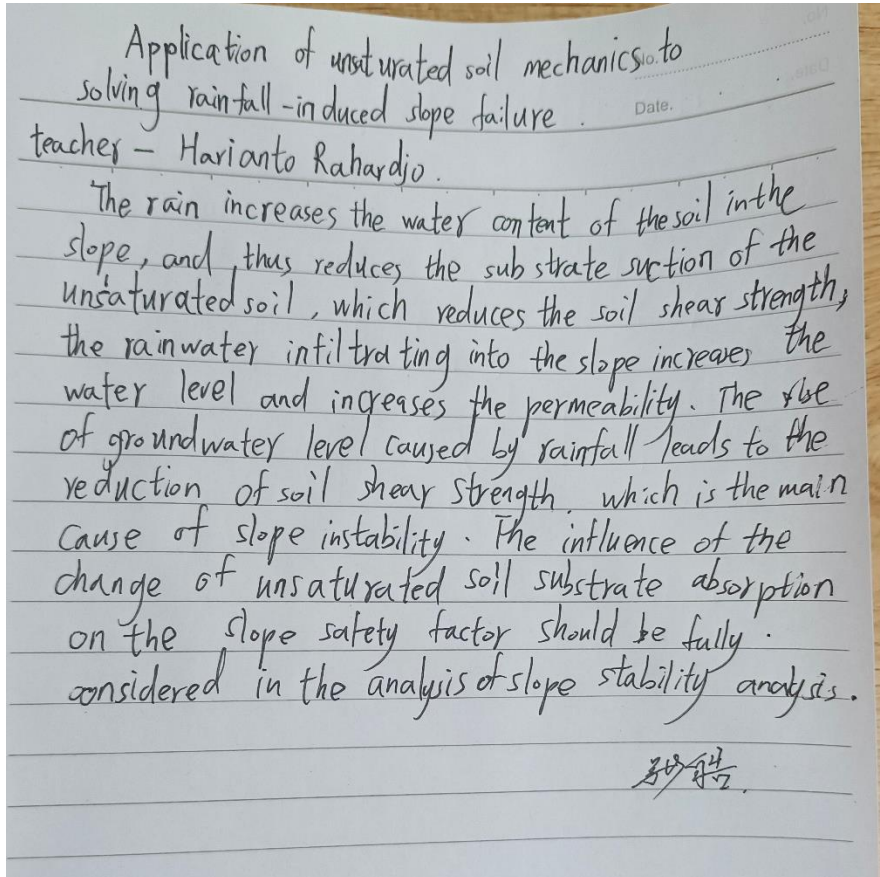 Application of unsaturated soil mechanics to
No.
solving rainfall-induced slope failure.
Date.
teacher - Harianto Rahardjo.
The rain increases the water content of the soil in the
slope, and, thus reduces the substrate suction of the
unsaturated soil, which reduces the soil shear strength,
the rainwater infiltrating into the slope increases the
water level and increases the permeability. The rise
of groundwater level caused by rainfall leads to the
reduction of soil shear strength, which is the main
cause of slope instability. The influence of the
change of unsaturated soil substrate absorption
on the slope safety factor should be fully.
considered in the analysis of slope stability analysis.